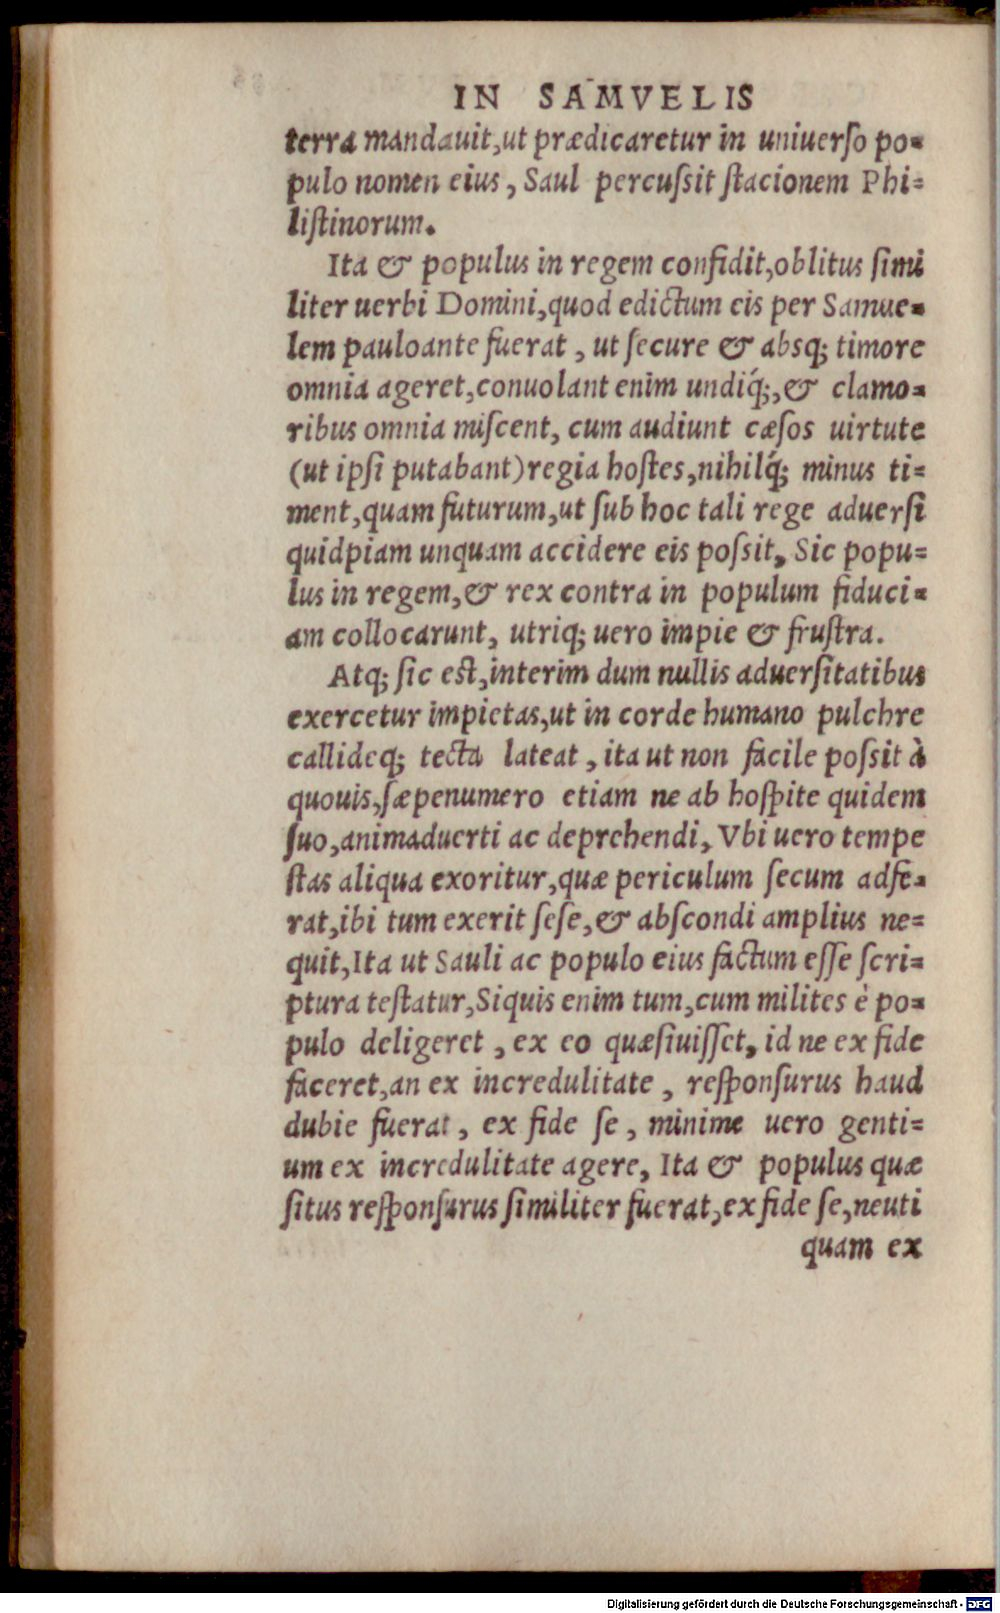 IN SAMVELIS
terra mandauit,ut prædicaretur in uniuerſo po=
pulo nomen eius, Saul percuſsit ſtacionem Phi=
liſtinorum.
Ita & populus in regem confidit,oblitus ſimi
liter uerbi Domini,quod edictum eis per Samue=
lem pauloante fuerat, ut ſecure & absq; timore
omnia ageret,conuolant enim undiq́;,& clamo=
ribus omnia miſcent, cum audiunt cæſos uirtute
(ut ipſi putabant)regia hoſtes,nihilq́; minus ti=
ment,quam futurum,ut ſub hoc tali rege aduerſi
quidpiam unquam accidere eis poſsit, Sic popu=
lus in regem,& rex contra in populum fiduci=
am collocarunt, utriq; uero impie & fruſtra.
Atq; ſic est,interim dum nullis aduerſitatibus
exercetur impietas,ut in corde humano pulchre
callideq; tecta lateat, ita ut non facile poſsit à
quouis,ſæpenumero etiam ne ab hoſpite quidem
ſuo,animaduerti ac deprehendi, Vbi uero tempe
ſtas aliqua exoritur,quæ periculum ſecum adfe=
rat,ibi tum exerit ſeſe,& abſcondi amplius ne=
quit,Ita ut Sauli ac populo eius factum eſſe ſcri=
ptura teſtatur,Siquis enim tum,cum milites è po=
pulo deligeret, ex eo quæſiuiſſet, id ne ex fide
faceret,an ex incredulitate, reſponſurus haud
dubie fuerat, ex fide ſe, minime uero genti=
um ex incredulitate agere, Ita & populus quæ
ſitus reſponſurus ſimiliter fuerat,ex fide ſe,neuti
quam ex
Digitalisierung gefördert durch die Deutsche Forschungsgemeinschaft - DFG